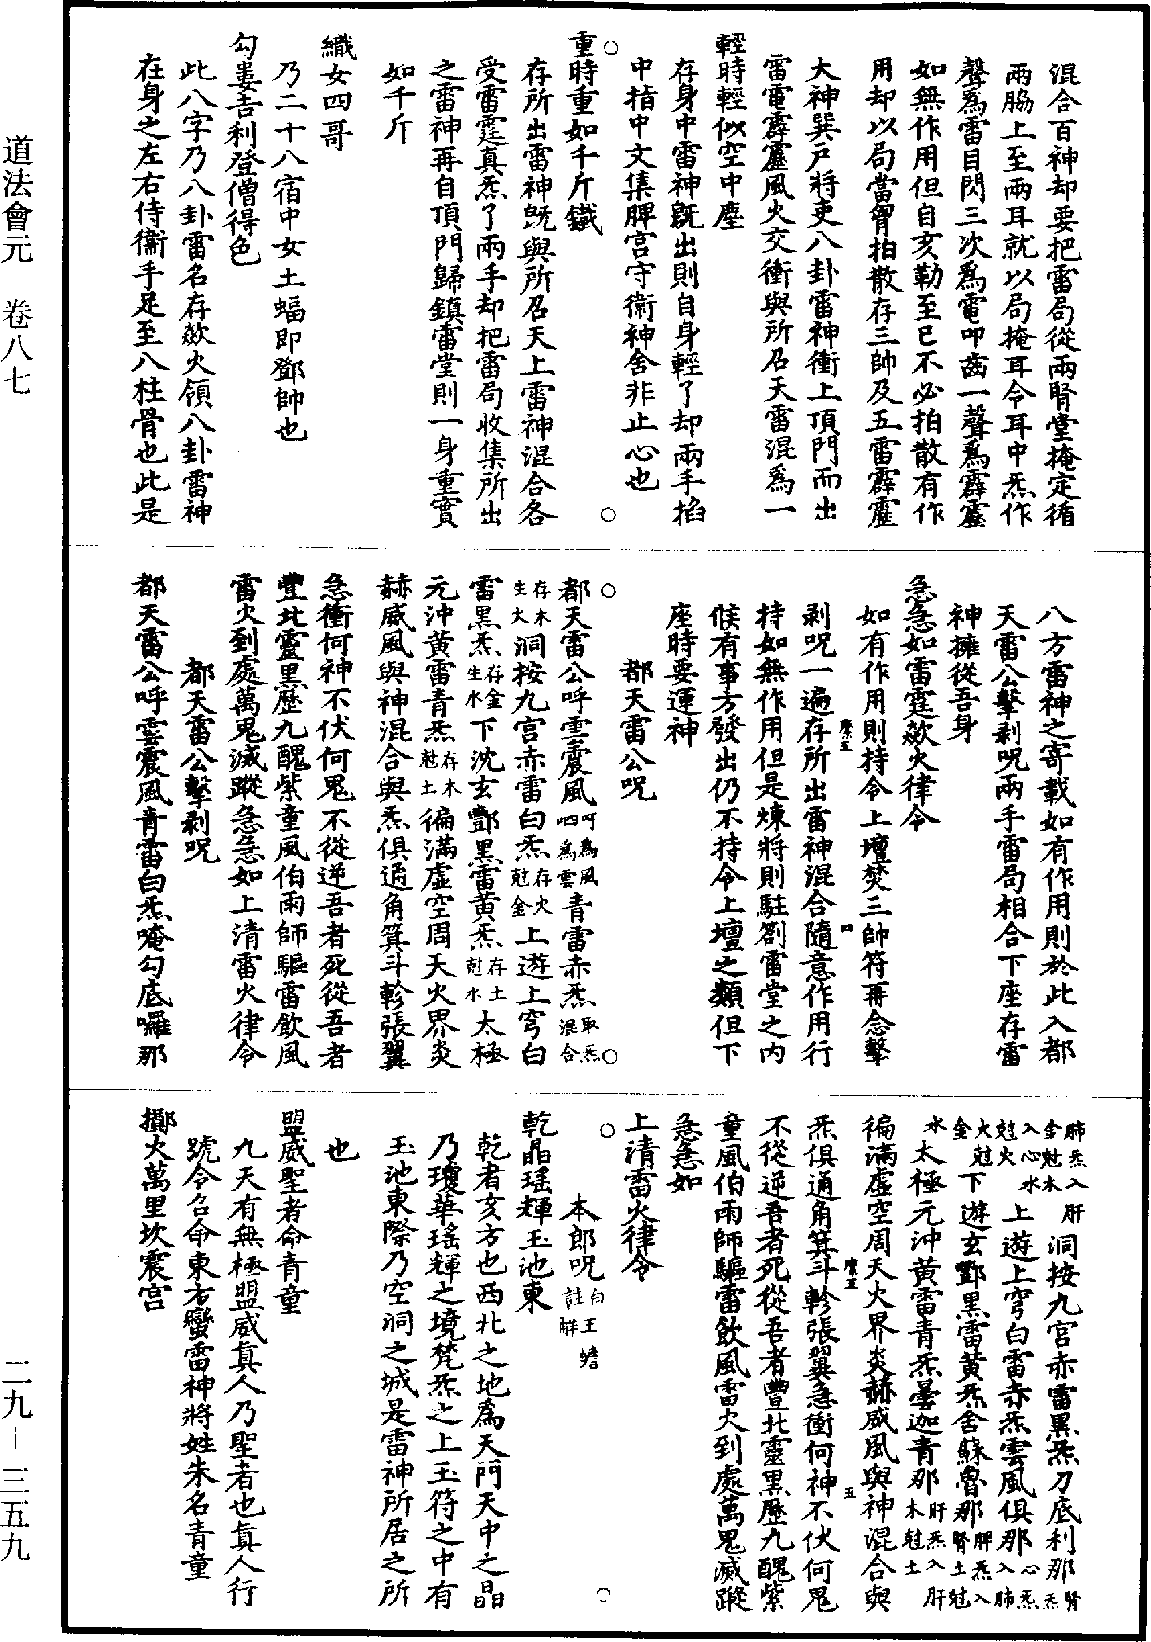 混合百神却要把雷局從兩腎堂掩定循
兩脇上至兩耳就以局掩耳令耳中炁作
聲爲雷目閃三次爲電叩齒一聲爲霹靂
如無作用但自亥勒至巳不必拍散有作
用却以局當胷拍散存三帥及五雷霹靂
大神巽戶將吏八卦雷神衝上頂門而出
雷電霹靂風火交衝與所召天雷混爲一
輕時輕似空中塵
存身中雷神旣出則自身輕了却兩手掐
中指中文集脾宮守衛神舍非止心也
重時重如千斤鐵
存所出雷神旣與所召天上雷神混合各
受雷霆真炁了兩手却把雷局收集所出
之雷神再自頂門歸鎮雷堂則一身重實
如千斤
織女四哥
乃二十八宿中女土蝠即鄧帥也
勾婁吉利登僧得色
此八字乃八卦雷名存歘火領八卦雷神
在身之左右侍衞手足至八柱骨也此是
八方雷神之寄載如有作用則於此入都
天雷公擊剥呪兩手雷局相合下座存雷
神擁從吾身
急急如雷霆歘火律令
如有作用則持令上壇焚三帥符再念擊
剥呪一遍存所出雷神混合隨意作用行
持如無作用但是煉將則駐劄雷堂之内
候有事方發出仍不持令上壇之類但下
座時要運神
都天雷公呪
都天雷公呼雲震風呵爲風呬爲雲青雷赤炁取炁混合
存木生火洞按九宮赤雷白炁存火尅金上遊上穹白
雷黑炁存金生水下沈玄酆黑雷黄炁存土尅水太極
元沖黄雷青炁存木尅土徧滿虛空周天火界炎
赫威風與神混合與炁俱通角箕斗軫張翼
急衝何神不伏何鬼不從逆吾者死從吾者
豐北靈黑歷九醜紫童風伯雨師驅雷飲風
雷火到處萬鬼滅蹤急急如上清雷火律令
都天雷公擊剥呪
都天雷公呼雲震風青雷白炁唵勾底囉那
肺炁入肝金尅木洞按九宮赤雷黑炁刀底利那腎炁
入心水尅火上遊上穹白雷赤炁雲風俱那心炁入肺
火尅金下遊玄酆黑雷黄炁舍蘇魯那脾炁入腎土尅
水太極元沖黄雷青炁曇迦青那肝炁入脾木尅土
徧滿虛空周天火界炎赫威風與神混合與
炁俱通角箕斗軫張翼急衝何神不伏何鬼
不從逆吾者死從吾者豐北靈黑歷九醜紫
童風伯雨師驅雷飲風雷火到處萬鬼滅蹤
急急如
上清雷火律令
本郎呪白玉蟾註解
乾晶瑶輝玉池東
乾者亥方也西北之地爲天門天中之晶
乃瓊華瑶輝之境梵炁之上玉符之中有
玉池東際乃空洞之城是雷神所居之所
也
盟威聖者命青童
九天有無極盟威真人乃聖者也真人行
號令召命東方蠻雷神將姓朱名青童
擲火萬里坎震宮
道法會元　卷八七
二九－三五九